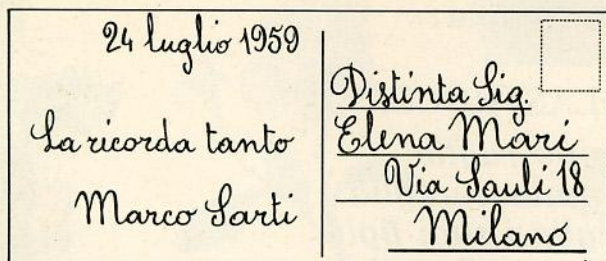 24 luglio 1959
La ricorda tanto
Marco Sarti
Distinta Sig.
Elena Mari
Via Sauli 18
Milano